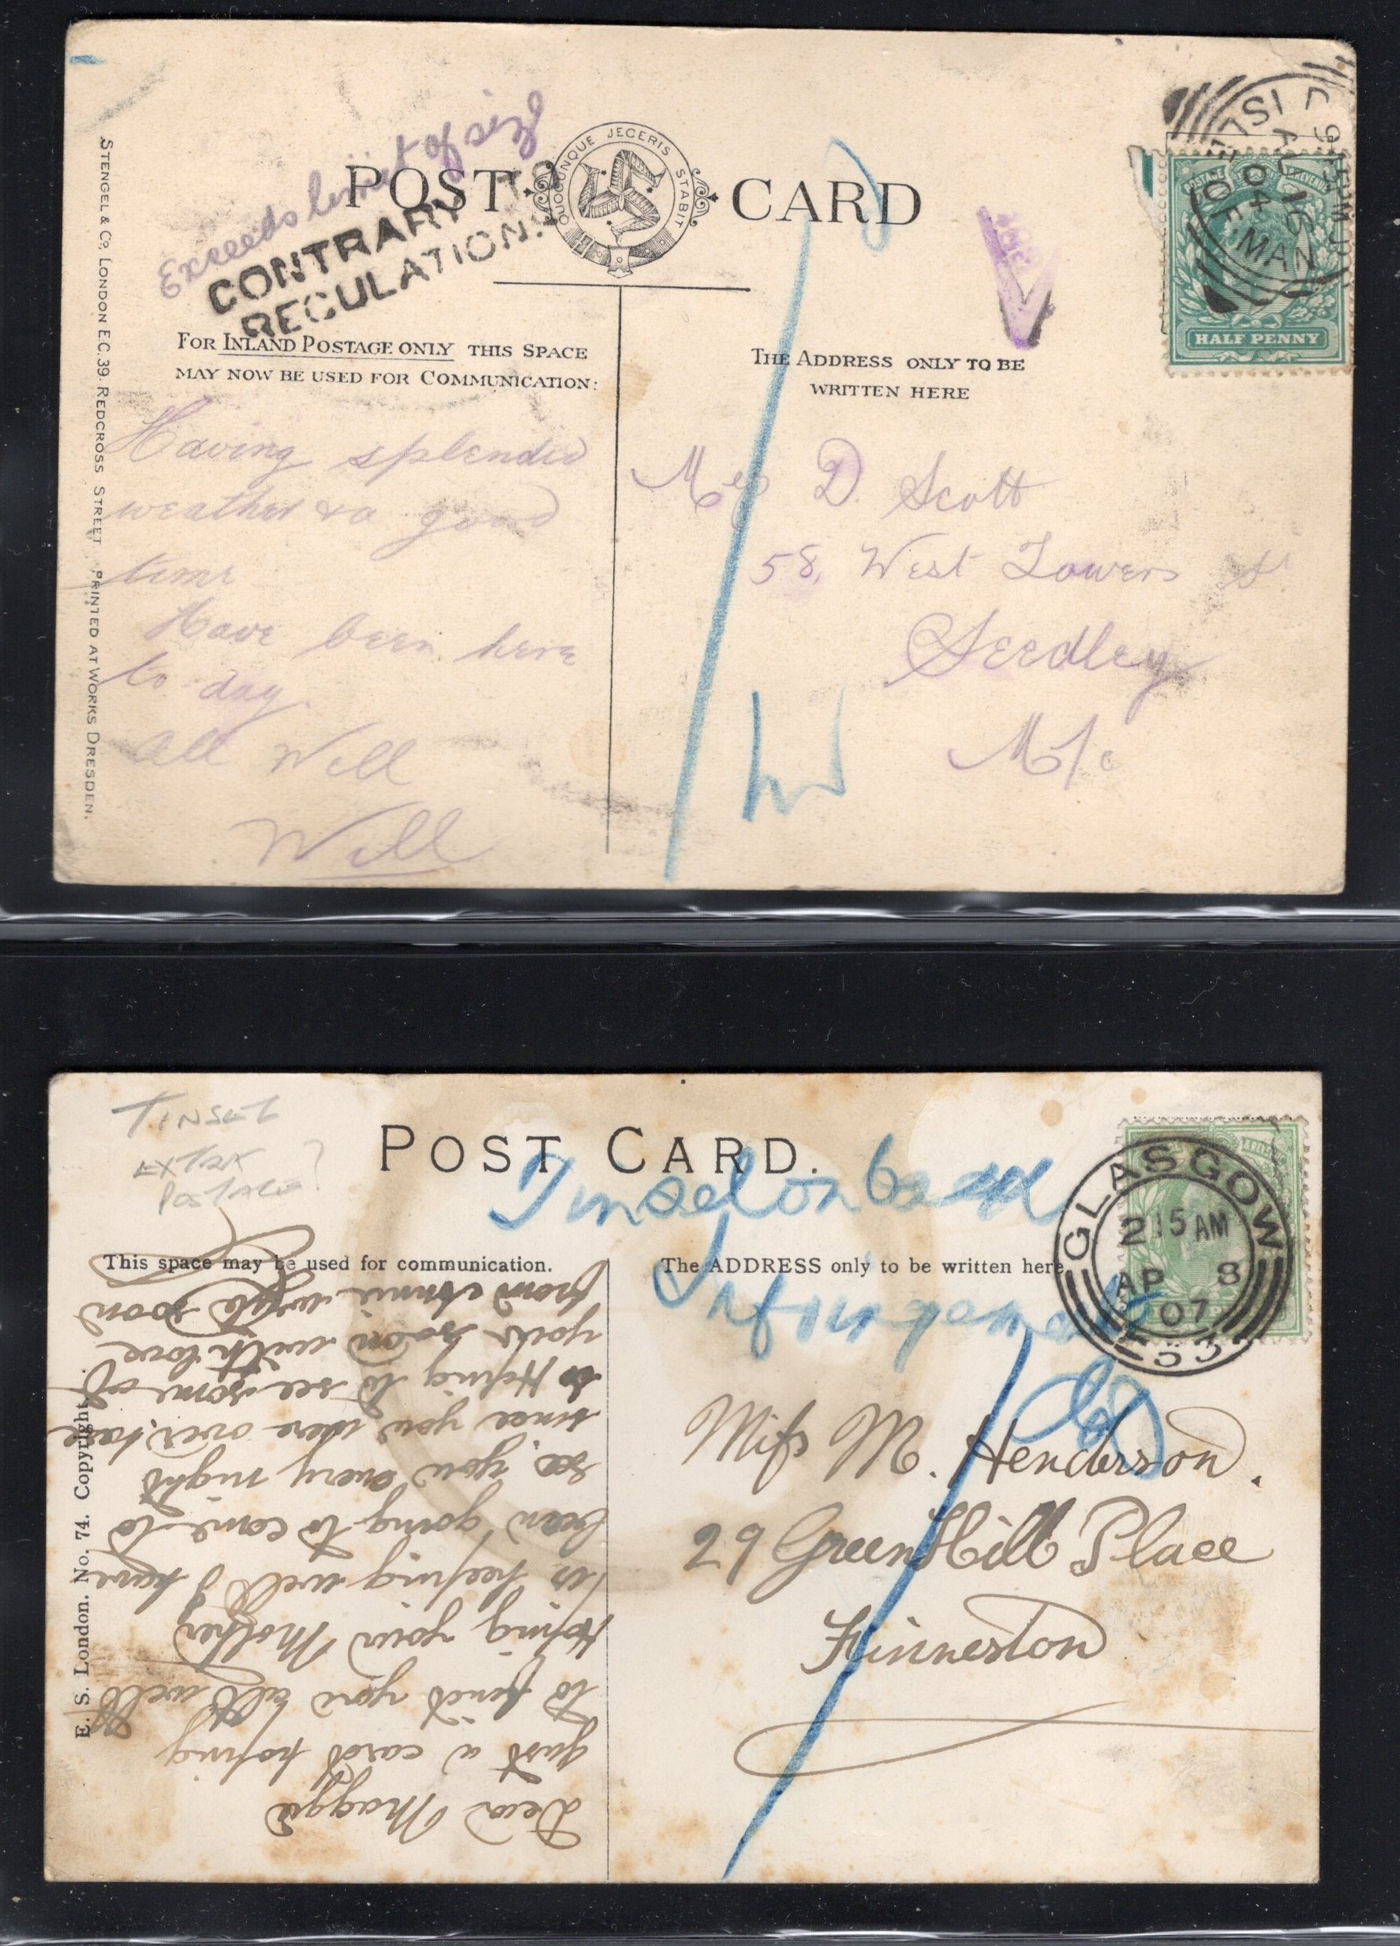 Exceeds limit of size
CONTRARY TO
REGULATION.
POST CARD
QUOCUNQUE JECERIS STABIT
ISLE OF MAN
AU 16
04
POSTAGE REVENUE
HALF PENNY
STENGEL & Co. LONDON E.C. 39. REDCROSS STREET PRINTED AT WORKS DRESDEN.
FOR INLAND POSTAGE ONLY THIS SPACE
MAY NOW BE USED FOR COMMUNICATION:
THE ADDRESS ONLY TO BE
WRITTEN HERE
Having splendid
weather & a good
time
Have been here
to day.
All Well
Will
D. Scott
58, West Towers St
Seedley
M/c
TINSEL
EXTRA
POSTAGE?
POST CARD.
Tinsel on
GLASGOW
2 15 AM
AP 8
07
This space may be used for communication.
The ADDRESS only to be written here
E. S. London. No. 74. Copyright.
Dear Maggie
Just a card hoping
to find you all well
hoping your Mother
is keeping well I have
been going to come to
see you every night
since you were over here
Hoping to see some of
you soon with love
from Annie write soon
Miss M. Henderson.
29 Green Hill Place
Finneston